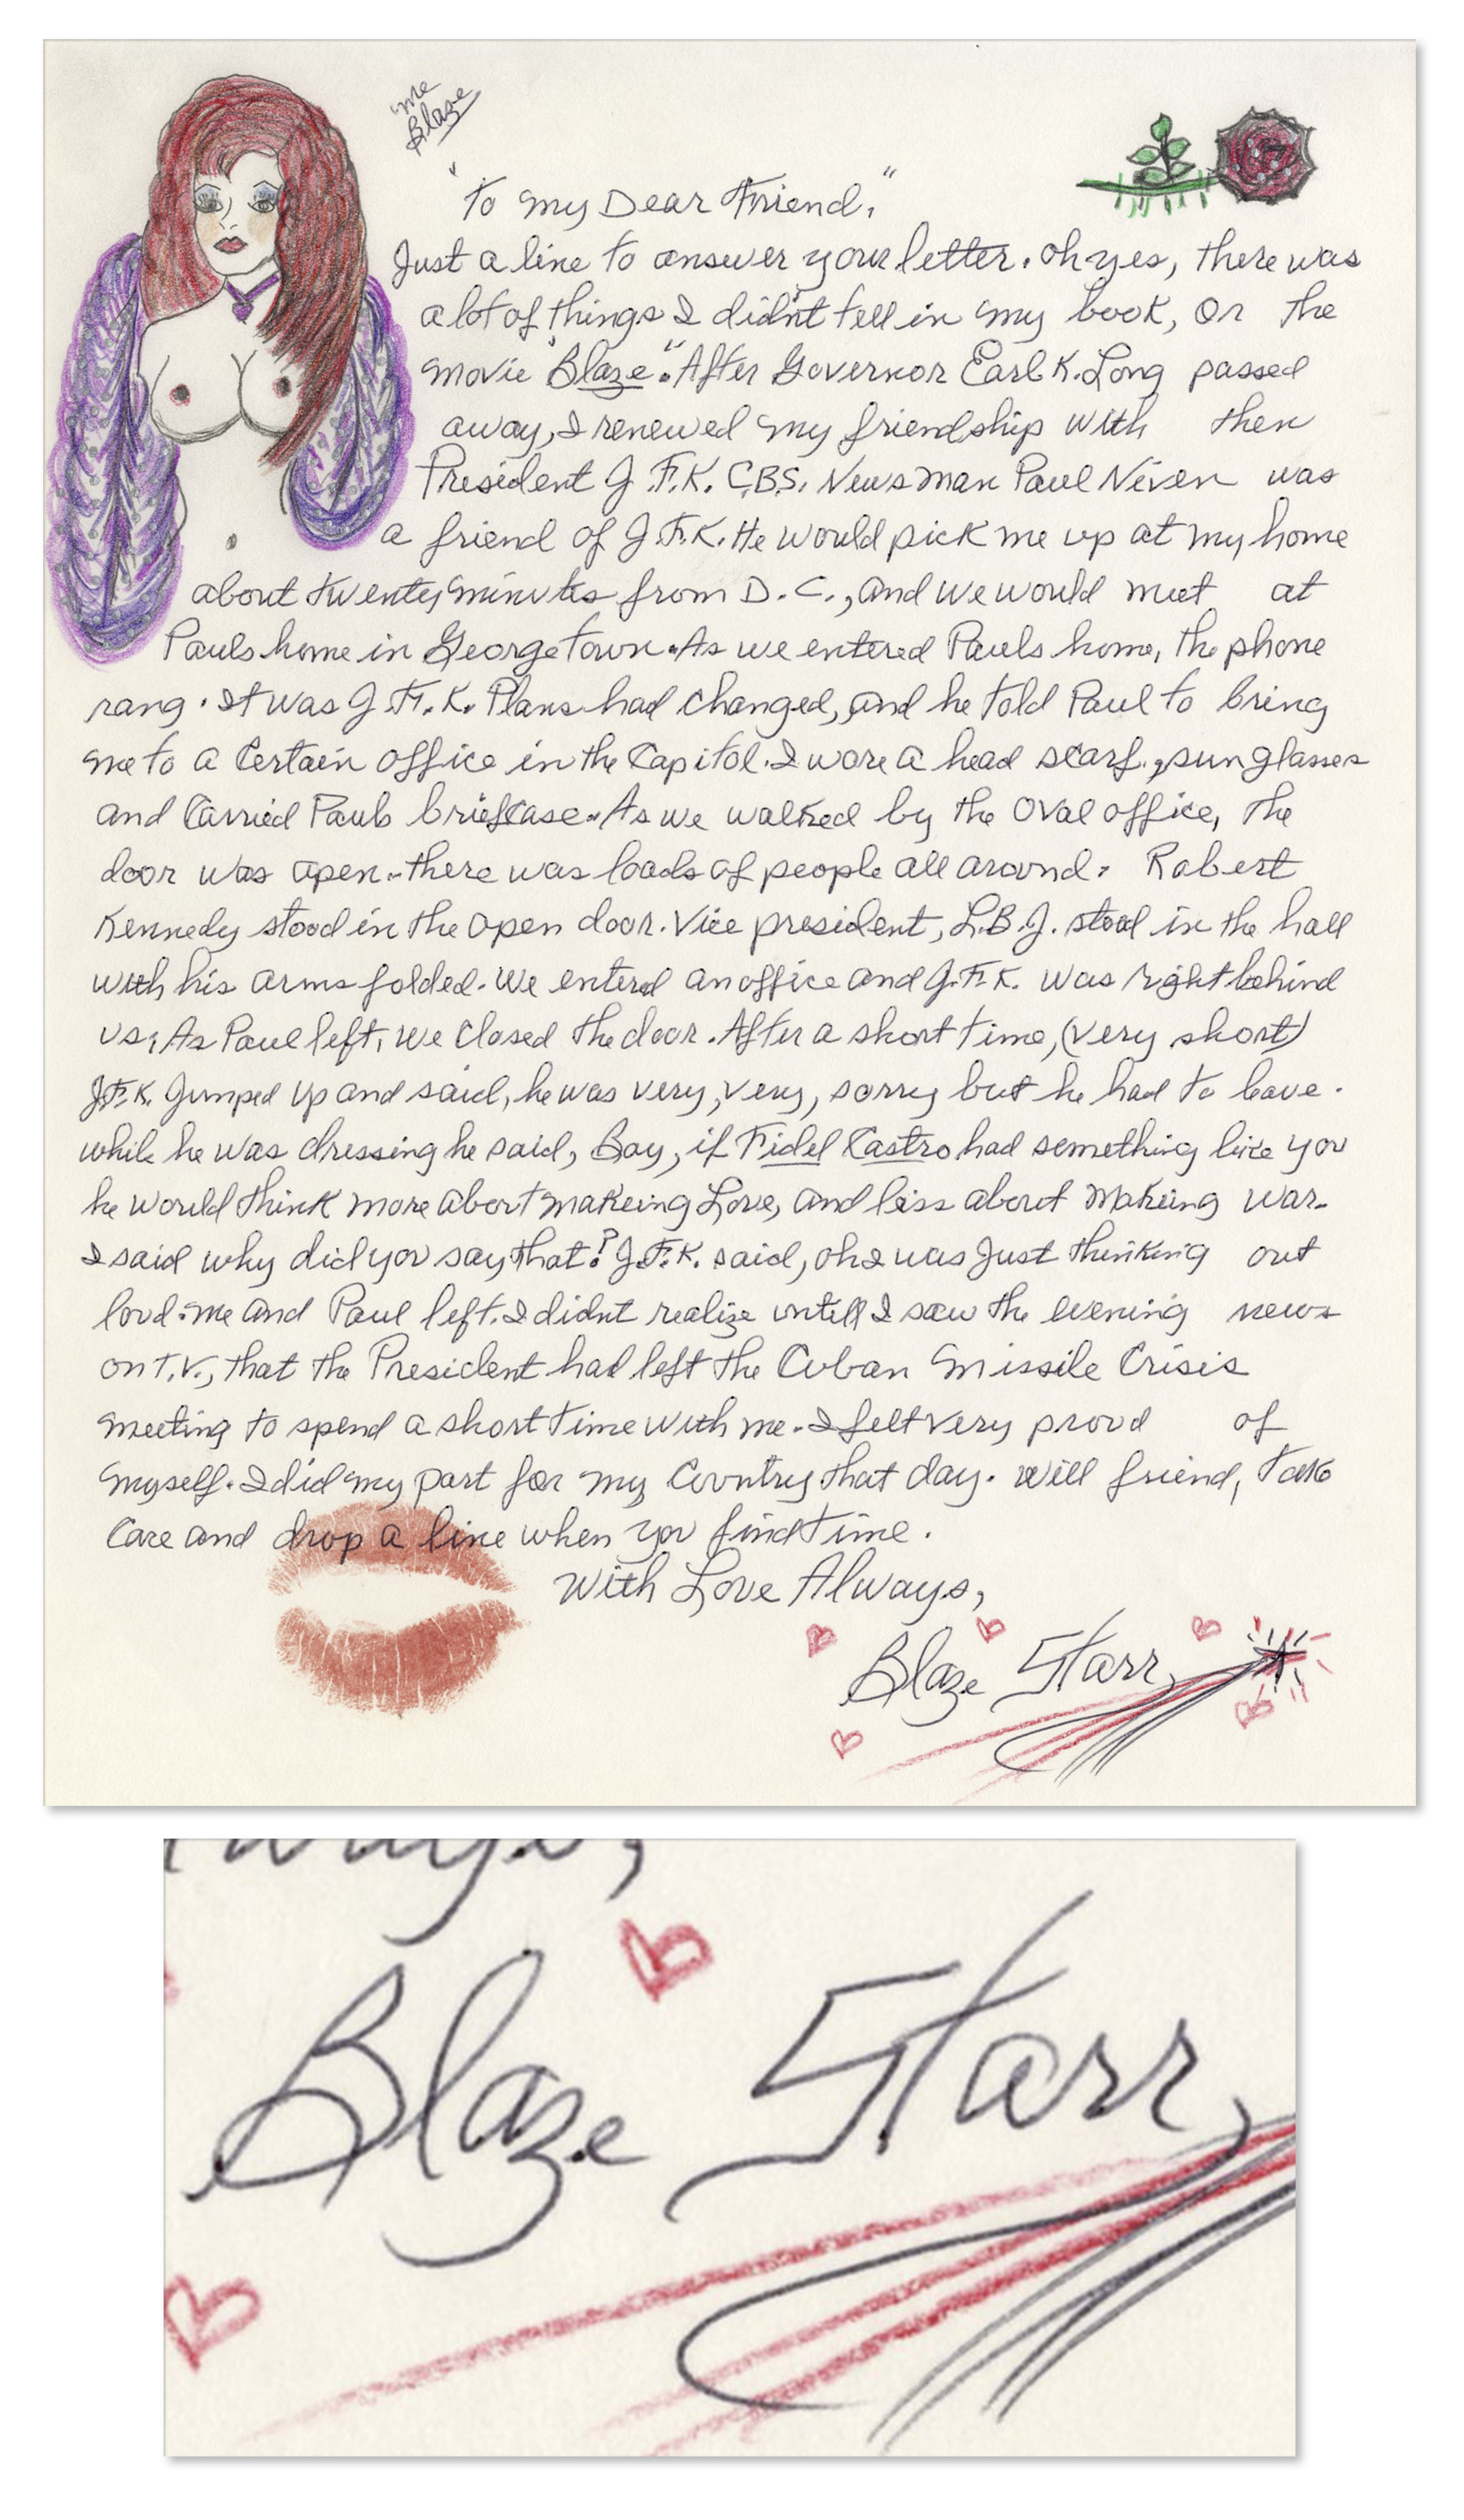 "me
Blaze
"To my Dear Friend,"
Just a line to answer your letter. Oh yes, there was
a lot of things I didn't tell in my book, or the
movie "Blaze". After Governor Earl K. Long passed
away, I renewed my friendship with then
President J.F.K. C.B.S. News man Paul Niven was
a friend of J.F.K. He would pick me up at my home
about twenty minutes from D.C., and we would meet at
Pauls home in Georgetown. As we entered Pauls home, the phone
rang. It was J.F.K. Plans had changed, and he told Paul to bring
me to a certain office in the Capitol. I wore a head scarf, sunglasses
and carried Pauls briefcase. As we walked by the Oval office, the
door was open. there was loads of people all around. Robert
Kennedy stood in the open door. Vice president, L.B.J. stood in the hall
with his arms folded. We entered an office and J.F.K. was right behind
us. As Paul left, we closed the door. After a short time, (very short)
J.F.K. Jumped up and said, he was very, very, sorry but he had to leave.
while he was dressing he said, Boy, if Fidel Castro had something like you
he would think more about makeing Love, and less about Makeing war.
I said why did you say that? J.F.K. said, oh I was Just thinking out
loud. me and Paul left. I didnt realize untill I saw the evening news
on T.V., that the President had left the Cuban Missile Crisis
meeting to spend a short time with me. I felt very proud of
myself. I did my part for my Country that day. Well friend, take
care and drop a line when you find time.
With Love Always,
Blaze Starr
Blaze Starr